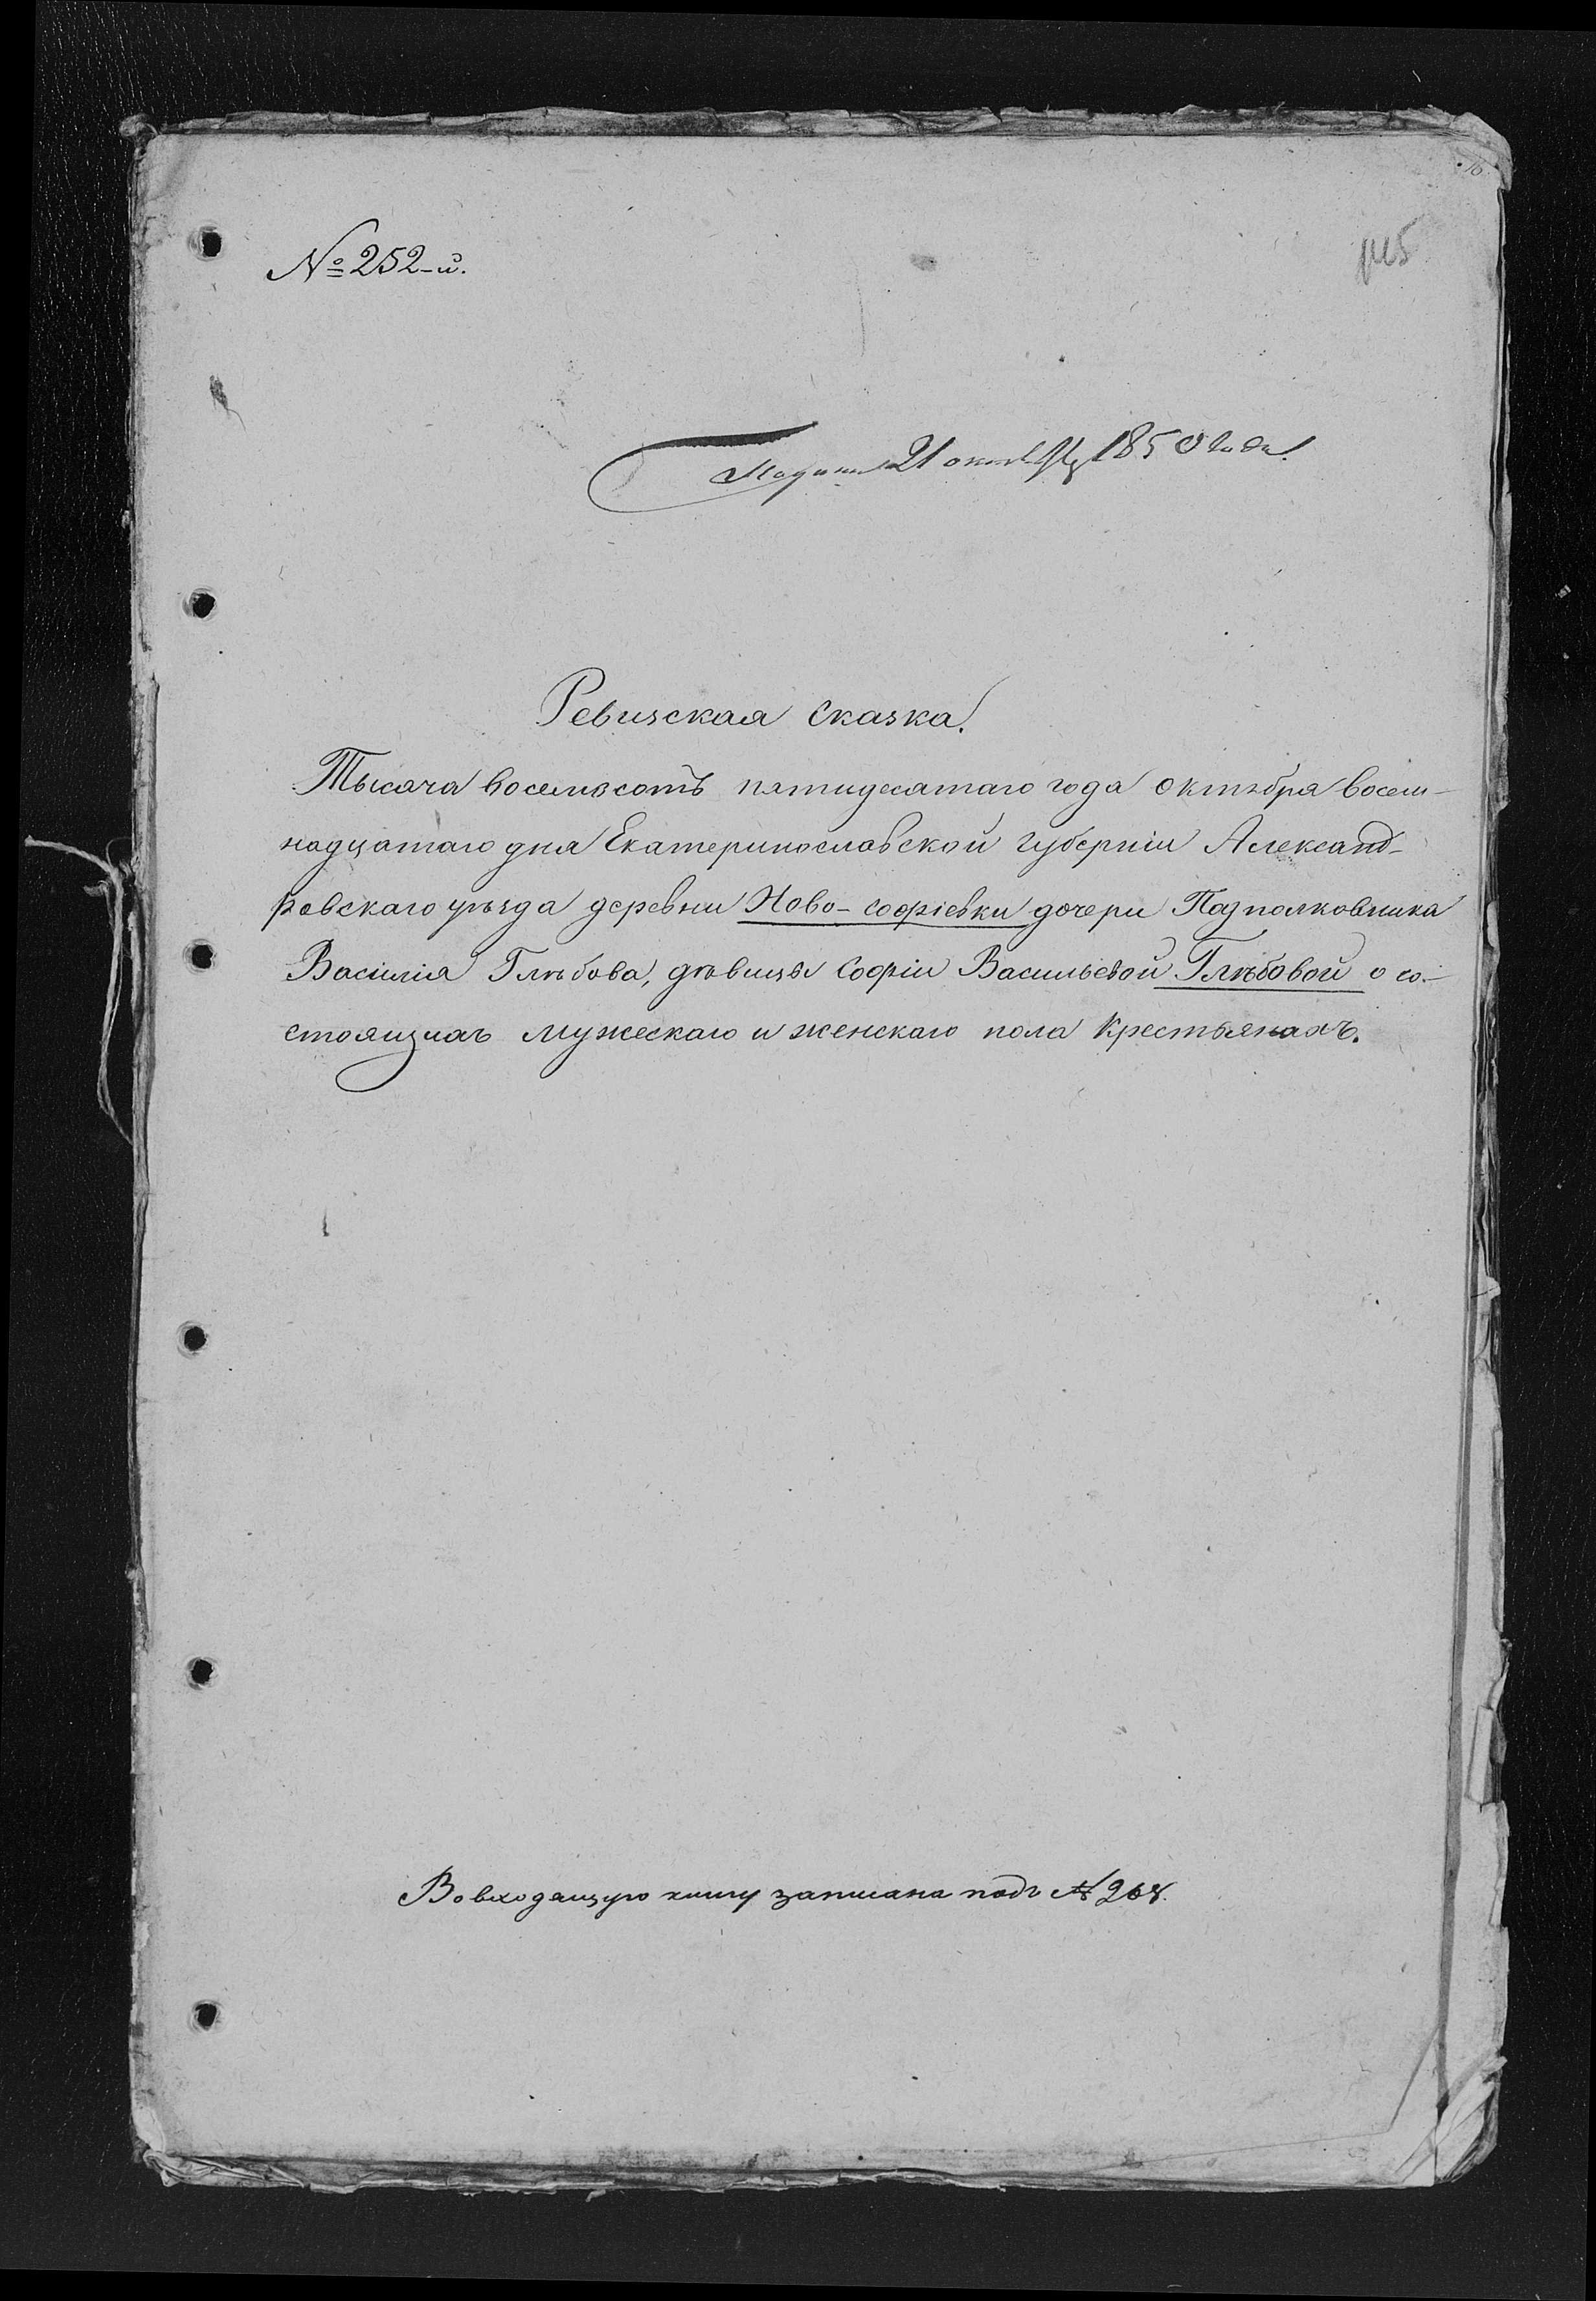 № 252-й.
21 октября 1850 года.
Ревизская сказка.
Тысяча восемьсотъ пятидесятаго года октября восем-
надцатаго дня Екатеринославской губерніи Александ-
ровскаго уѣзда деревни Ново-софіевки дочери Подполковника
Василія Глѣбова, дѣвицы Софіи Васильевой Глѣбовой о со-
стоящихъ мужескаго и женскаго пола крестьянахъ.
Во входящую книгу записана подъ № 268.